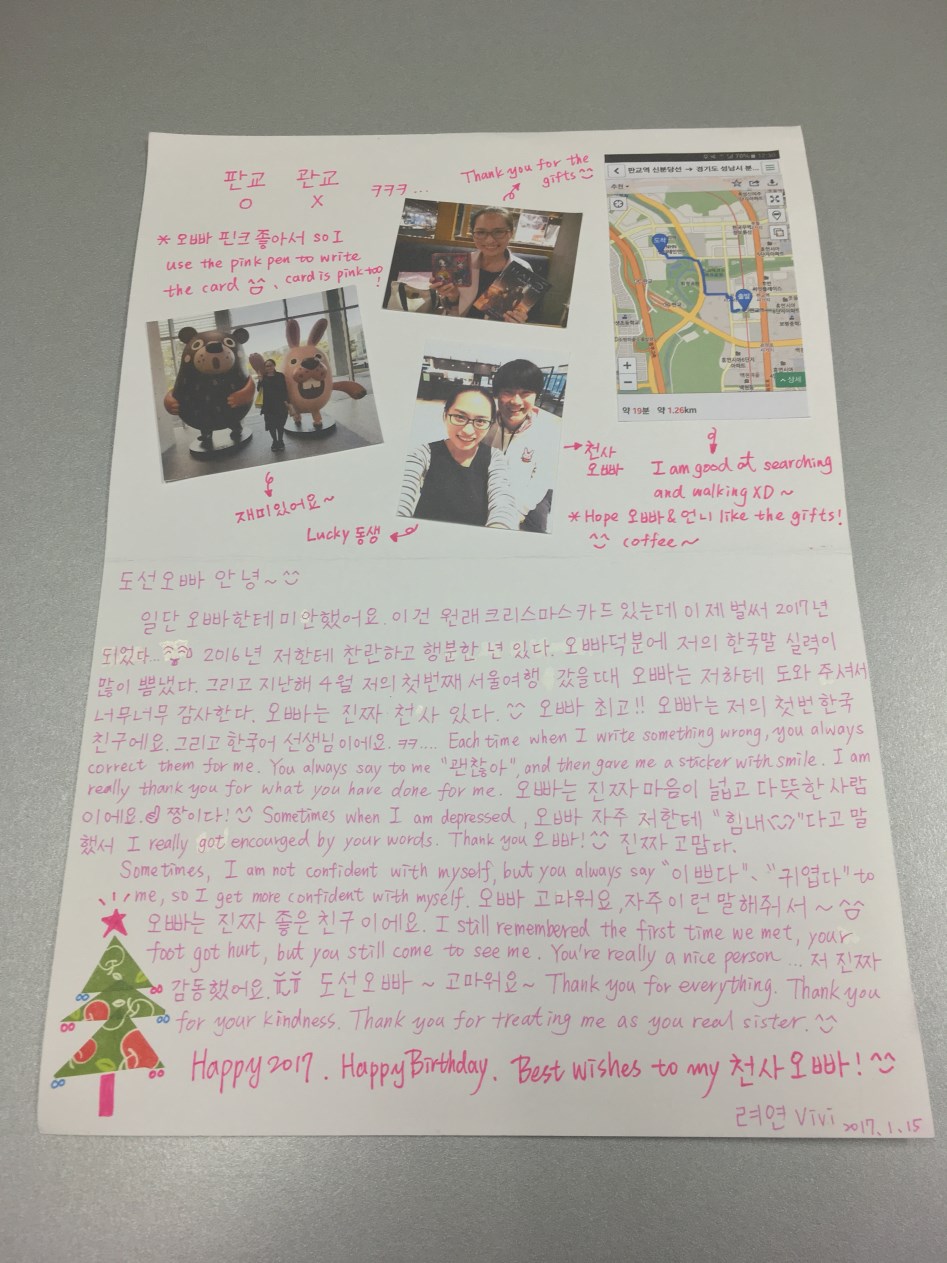 판교 관교 ㅋㅋㅋ...
O X
Thank you for the
gifts
* 오빠 핀크 좋아서 so I
use the pink pen to write
the card ^^、card is pink too!
판교역 신분당선 → 경기도 성남시 분...
추천
도착
출발
상세
약 19분 약 1.26km
재미있어요~
Lucky 동생
천사
오빠
I am good at searching
and walking XD ~
* Hope 오빠 & 언니 like the gifts!
^^ coffee ~
도선오빠 안녕~
일단 오빠한테 미안했어요. 이건 원래 크리스마스카드 있는데 이제 벌써 2017년
되었다... 2016년 저한테 찬란하고 행분한 년 있다. 오빠덕분에 저의 한국말 실력이
많이 뽐냈다. 그리고 지난해 4월 저의 첫번째 서울여행 갔을때 오빠는 저하테 도와 주셔서
너무너무 감사한다. 오빠는 진짜 천사 있다. 오빠 최고!! 오빠는 저의 첫번 한국
친구에요. 그리고 한국어 선생님이에요. ㅋㅋ.... Each time when I write something wrong, you always
correct them for me. You always say to me "괜찮아", and then gave me a sticker with smile. I am
really thank you for what you have done for me. 오빠는 진짜 마음이 넓고 다뜻한 사람
이에요. 짱이다! Sometimes when I am depressed, 오빠 자주 저한테 "힘내"다고 말
했서 I really got encourged by your words. Thank you 오빠! 진짜 고맙다.
Sometimes, I am not confident with myself, but you always say "이쁘다"、"귀엽다" to
me, so I get more confident with myself. 오빠 고마워요, 자주 이런 말해줘서 ~ ^^
오빠는 진짜 좋은 친구 이에요. I still remembered the first time we met, your
foot got hurt, but you still come to see me. You're really a nice person ... 저 진짜
감동했어요. 도선오빠 ~ 고마워요~ Thank you for everything. Thank you
for your kindness. Thank you for treating me as you real sister.
Happy 2017. Happy Birthday. Best wishes to my 천사오빠! ^^
려연 Vivi 2017.1.15